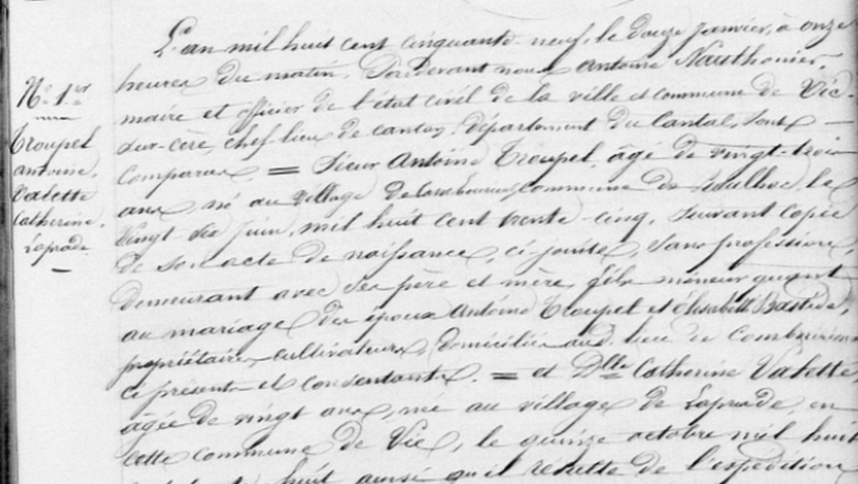 N.º 1.er
Troupel
antoine.
Valette
Catherine.
Laprade.
L'an mil huit cent cinquante-neuf, le douze janvier, à onze
heures du matin. Pardevant nous Antoine Nausthonier,
maire et officier de l'état civil de la ville et commune de Vic-
sur-cère, chef-lieu de canton, département du Cantal, sont
comparus = Sieur Antoine Troupel, âgé de vingt-trois
ans, né au village de commune de le
vingt juin, mil huit cent trente-cinq, suivant copie
de son acte de naissance, ci-jointe, sans profession,
demeurant avec ses père et mère, fils mineur quant
au mariage des époux Antoine Troupel et Elisabeth Bastide,
propriétaires cultivateurs, domiciliés aud. lieu de
ci présents et consentants. = et Dlle Catherine Valette,
âgée de vingt ans, née au village de Laprade, en
cette commune de Vic, le quinze octobre mil huit
huit ainsi qu'il résulte de l'expédition